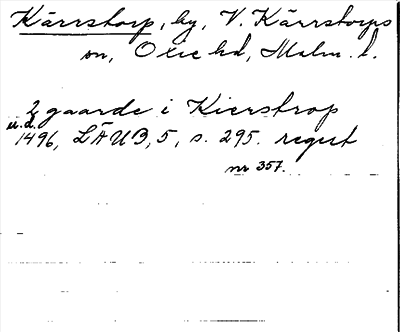 Kärrstorp, by, V. Kärrstorps
sn, Oxie hd, Malm. l.
2 gaarde i Kierstrop
u.d.
1496, LÄUB, 5, s. 295. regest
nr 357.